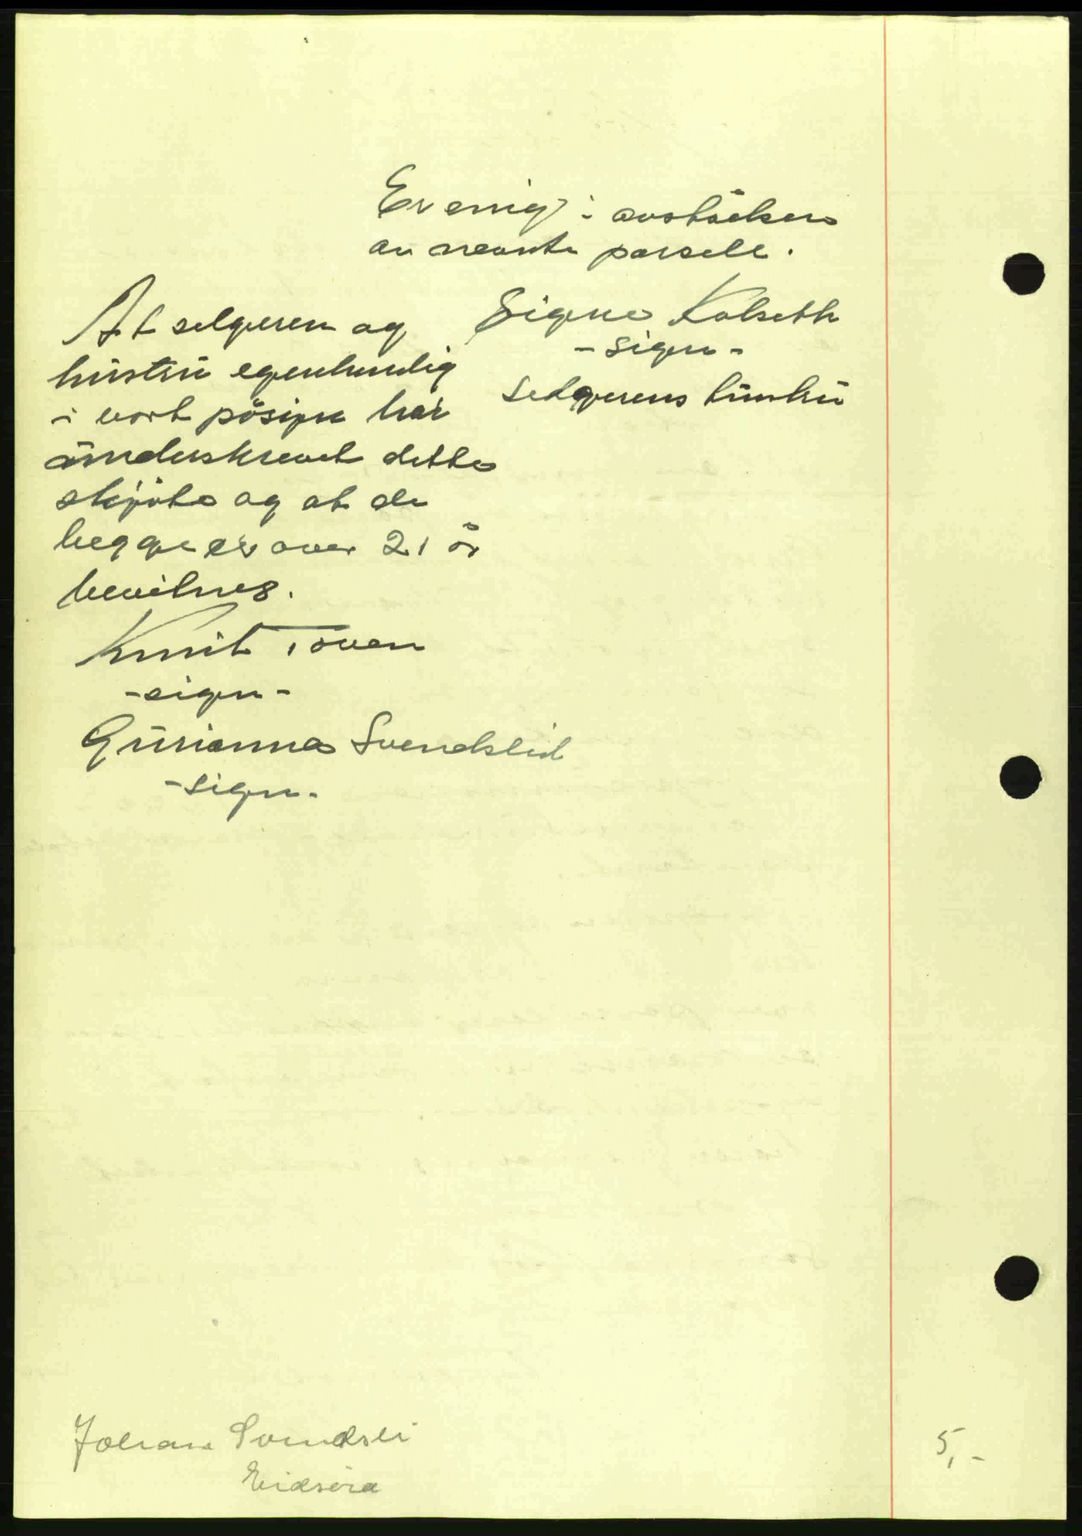 Er enig i avståelsen
av nevnte parsell.
Signe Kalseth
-sign-
Selgerens hustru
At selgeren og
hustru egenhendig
i vort påsyn har
underskrevet dette
skjøte og at de
begge er over 21 år
bevitnes.
Knut Toven
-sign-
Gurianna Svendslid
-sign.
Johan Svendsli
Eidsøra
5,-